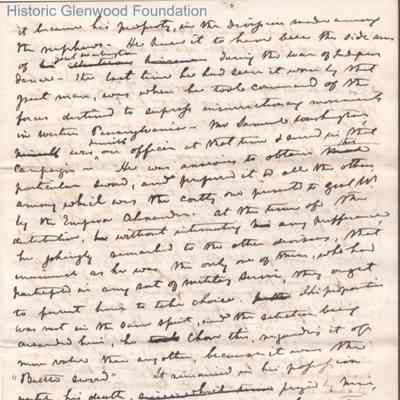 Historic Glenwood Foundation
it became his property, in the division made among
the nephews. He knew it to have been the side arm
of Genl Washington during the war of Indepen
dence - The last time he had seen it worn by that
great man, was when he took command of the
forces destined to suppress insurrectionary movements
in western Pennsylvania - Mr Samuel Washington
was, himself an officer at that time & served in that
campaign - He was anxious to obtain this
particular sword, and preferred it to all the others
among which was the costly one present to Genl W
by the Emperor Alexander. At the time of the
distribution, he without intimating any preference
he jokingly remarked to the other devisees, "that
inasmuch as he was the only one of them, who had
participated in any sort of military service, they ought
to permit him to take choice. This proposition
was met in the same spirit, and the selection being
awarded him, he chose this, regarding it of
more value than any other, because it was the
"Battle sword" It remained in his possession
until his death,